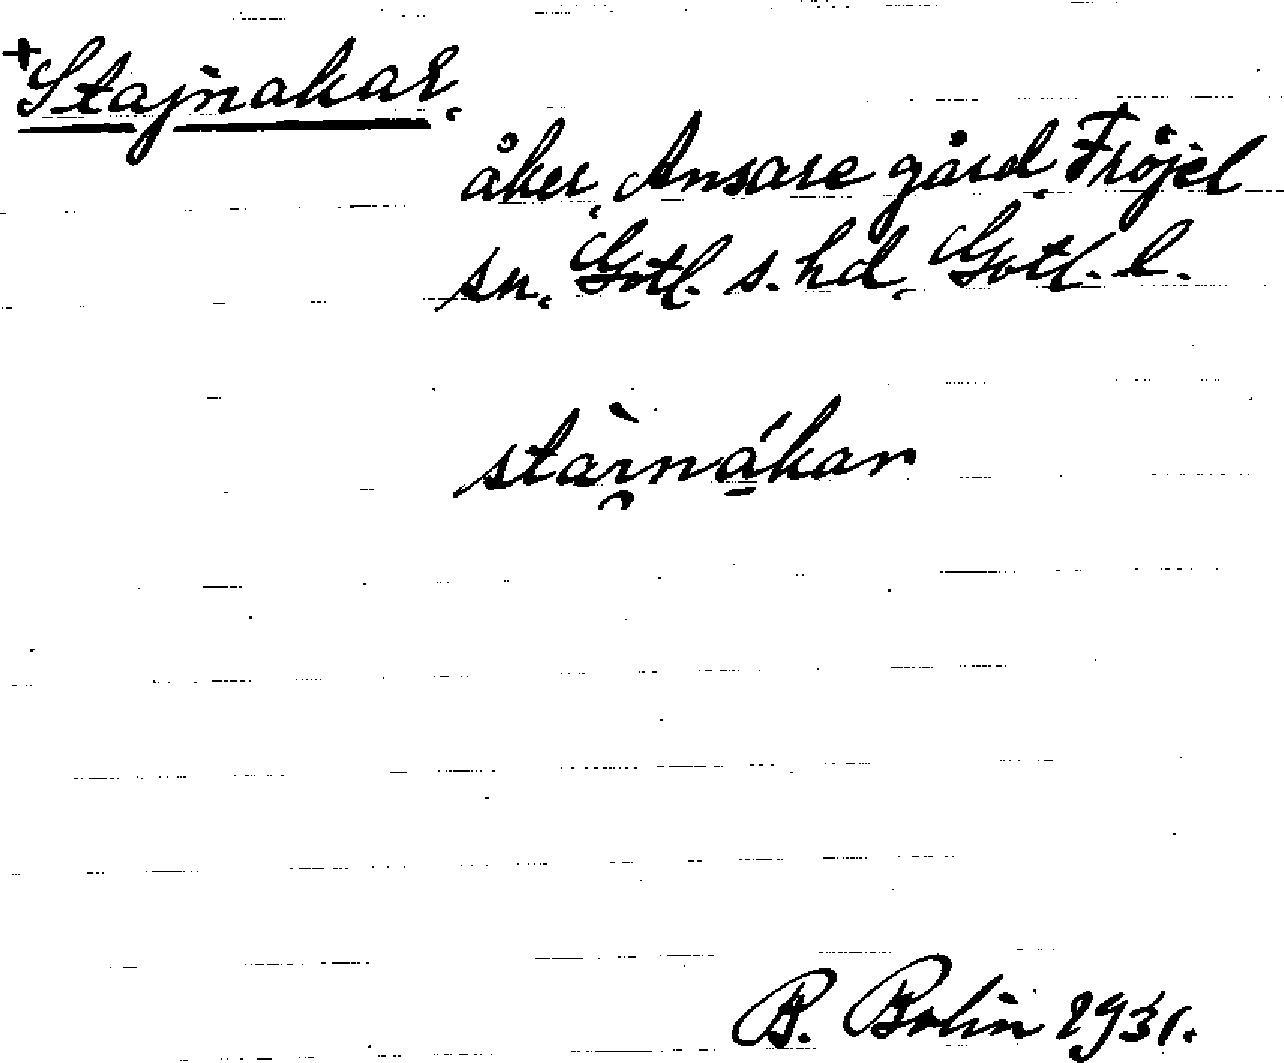 +Stajnakar,
åker, Ansare gård, Fröjel
sn, Gotl. s. hd, Gotl. l.
stàı̯nákar
B. Bolin 1931.